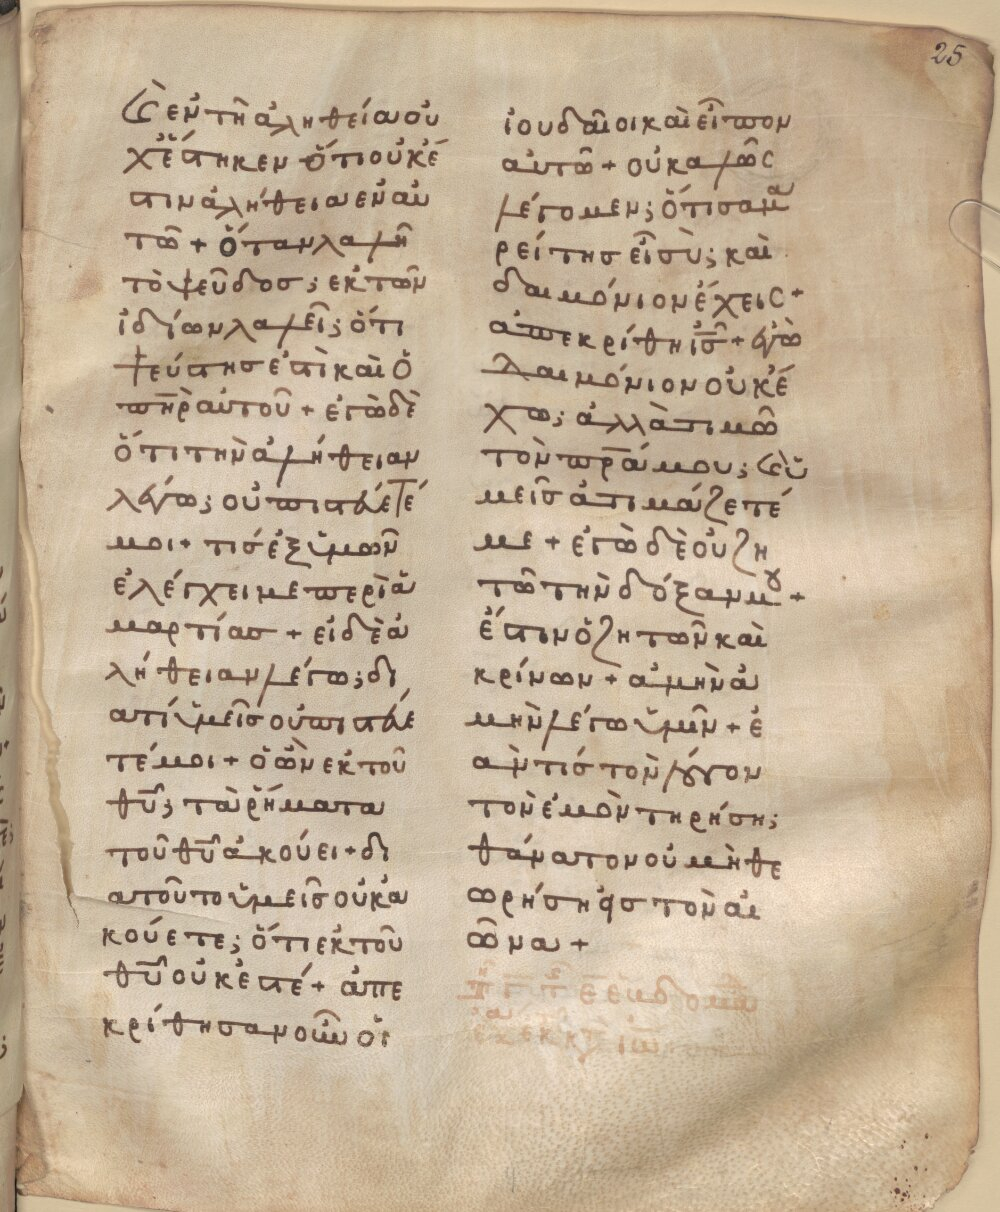 25
ϗ ἐν τῆ ἀληθεία οὐ
χἕστηκεν ὅτι οὐκ ἔ
στιν ἀλήθεια ἐν αὐ
τῶ + ὅταν λαλῆ
τὸ ψεῦδος; ἐκ τῶν
ἰδίων λαλεῖ; ὅτι
ψεύστης ἐστὶ καὶ ὁ
πη̅ρ αὐτοῦ + ἐγὼ δὲ
ὅτι τὴν ἀλήθειαν
λέγω; οὐ πιστεύετέ
μοι + τίς ἐξ ὑμῶν
ἐλέγχει με περὶ ἁ
μαρτίας + εἰ δὲ ἀ
λήθειαν λέγω; δι
ατί ὑμεῖς οὐ πιστεύε
τέ μοι + ὁ ὢν ἐκ τοῦ
θυ̅; τὰ ῥήματα
τοῦ θυ̅ ἀκούει + δι
ατοῦτο ὑμεῖς οὐκ ἀ
κούετε; ὅτι ἐκ τοῦ
θυ̅ οὐκ ἐστέ + ἀπε
κρίθησαν οὖν οἱ
ἰουδαῖοι καὶ εἶπον
αὐτῶ + οὐ καλῶς
λέγομεν; ὅτι σαμα
ρείτης εἶ σὺ; καὶ
δαιμόνιον ἔχεις +
ἀπεκρίθη ις̅ + ἐγὼ
δαιμόνιον οὐκ ἔ
χω; ἀλλὰ τιμῶ
τὸν πρ̅α μου; ϗ ὑ
μεῖς ἀτιμάζετέ
με + ἐγὼ δὲ οὐ ζη
τῶ τὴν δόξαν μου +
ἔστιν ὁ ζητῶν καὶ
κρίνων + ἀμὴν ἀ
μὴν λέγω ὑμῖν + ἐ
άν τις τὸν λόγον
τὸν ἐμὸν τηρήση;
θάνατον οὐ μὴ θε
ωρήση εἰς τὸν αἰ
ῶνα +